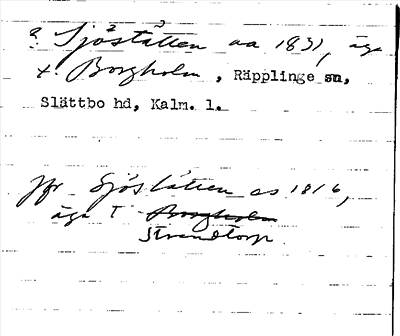 ? Sjöstätten aa 1831, äga
t. Borgholm, Räpplinge sn,
Slättbo hd, Kalm. l.
Jfr Sjöstätten as 1816,
äga T Borgholm
Strandtorp